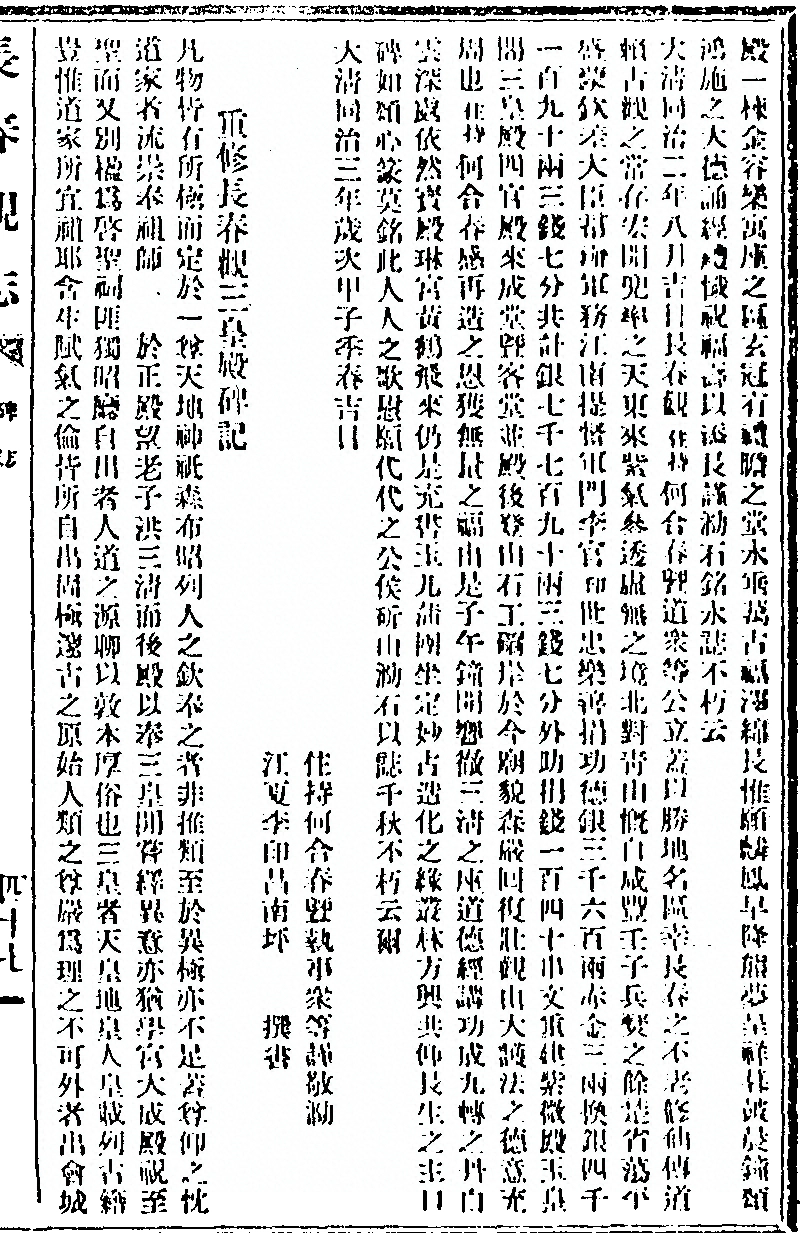 殿一棟金容樂寓座之區玄冠有禮瞻之堂永垂萬古福澤綿長惟願麟鳳早降熊夢呈祥暮鼓晨鐘頌
鴻施之大德誦經禮懺祝福壽以添長謹泐石銘永誌不朽云
大清同治二年八月吉日長春觀住持何合春暨道衆等公立蓋以勝地名區幸長春之不老修仙傳道
賴古觀之常存宏開兜率之天東來紫氣參透虛無之境北對青山慨自咸豐壬子兵燹之餘楚省蕩平
盛蒙欽差大臣督辦軍務江南提督軍門李官印世忠樂善捐功德銀三千六百兩赤金三兩換銀四千
一百九十兩三錢七分共計銀七千七百九十兩三錢七分外助捐錢一百四十串文重建紫微殿玉皇
閣三皇殿四官殿來成堂暨客堂並殿後發山石工礀岸於今廟貌森嚴回復壯觀山大護法之德意充
周也住持何合春感再造之恩獲無量之福由是子午鐘聞響徹三清之座道德經講功成九轉之丹白
雲深處依然寶殿琳宮黃鶴飛來仍是充書玉几蒲團坐定妙占造化之緣叢林方興共仰長生之主口
碑如頌心篆莫銘此人人之歌慰願代代之公侯斫山泐石以誌千秋不朽云爾
大清同治三年歲次甲子季春吉日
住持何合春暨執事衆等謹敬泐
江夏李印昌南坪 撰書
重修長春觀三皇殿碑記
凡物皆有所極而定於一尊天地神祇森布昭列人之欽奉之者非推類至於異極亦不是著尊仰之忱
道家者流崇奉祖師 於正殿望老子洪三清而後殿以奉三皇開容繹異意亦猶學宮大成殿祝至
聖而又別楹爲啓聖祠匪獨昭廳自出者人道之源聊以敦本厚俗也三皇者天皇地皇人皇載列古籍
豈惟道家所宜祖耶含生賦氣之倫皆所自出固極邃古之原始人類之尊嚴爲理之不可外者出會城
長春觀志
碑
四